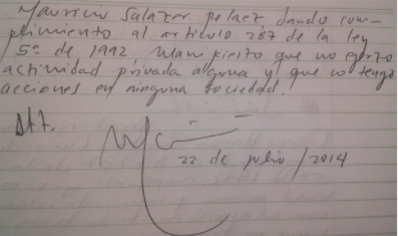 Mauricio Salazar pelaez, dando cum-
plimiento al articulo 287 de la ley
5ª de 1992, Manifiesto que no ejerzo
actividad privada alguna y que no tengo
acciones en ninguna sociedad.
Att.
22 de julio / 2014